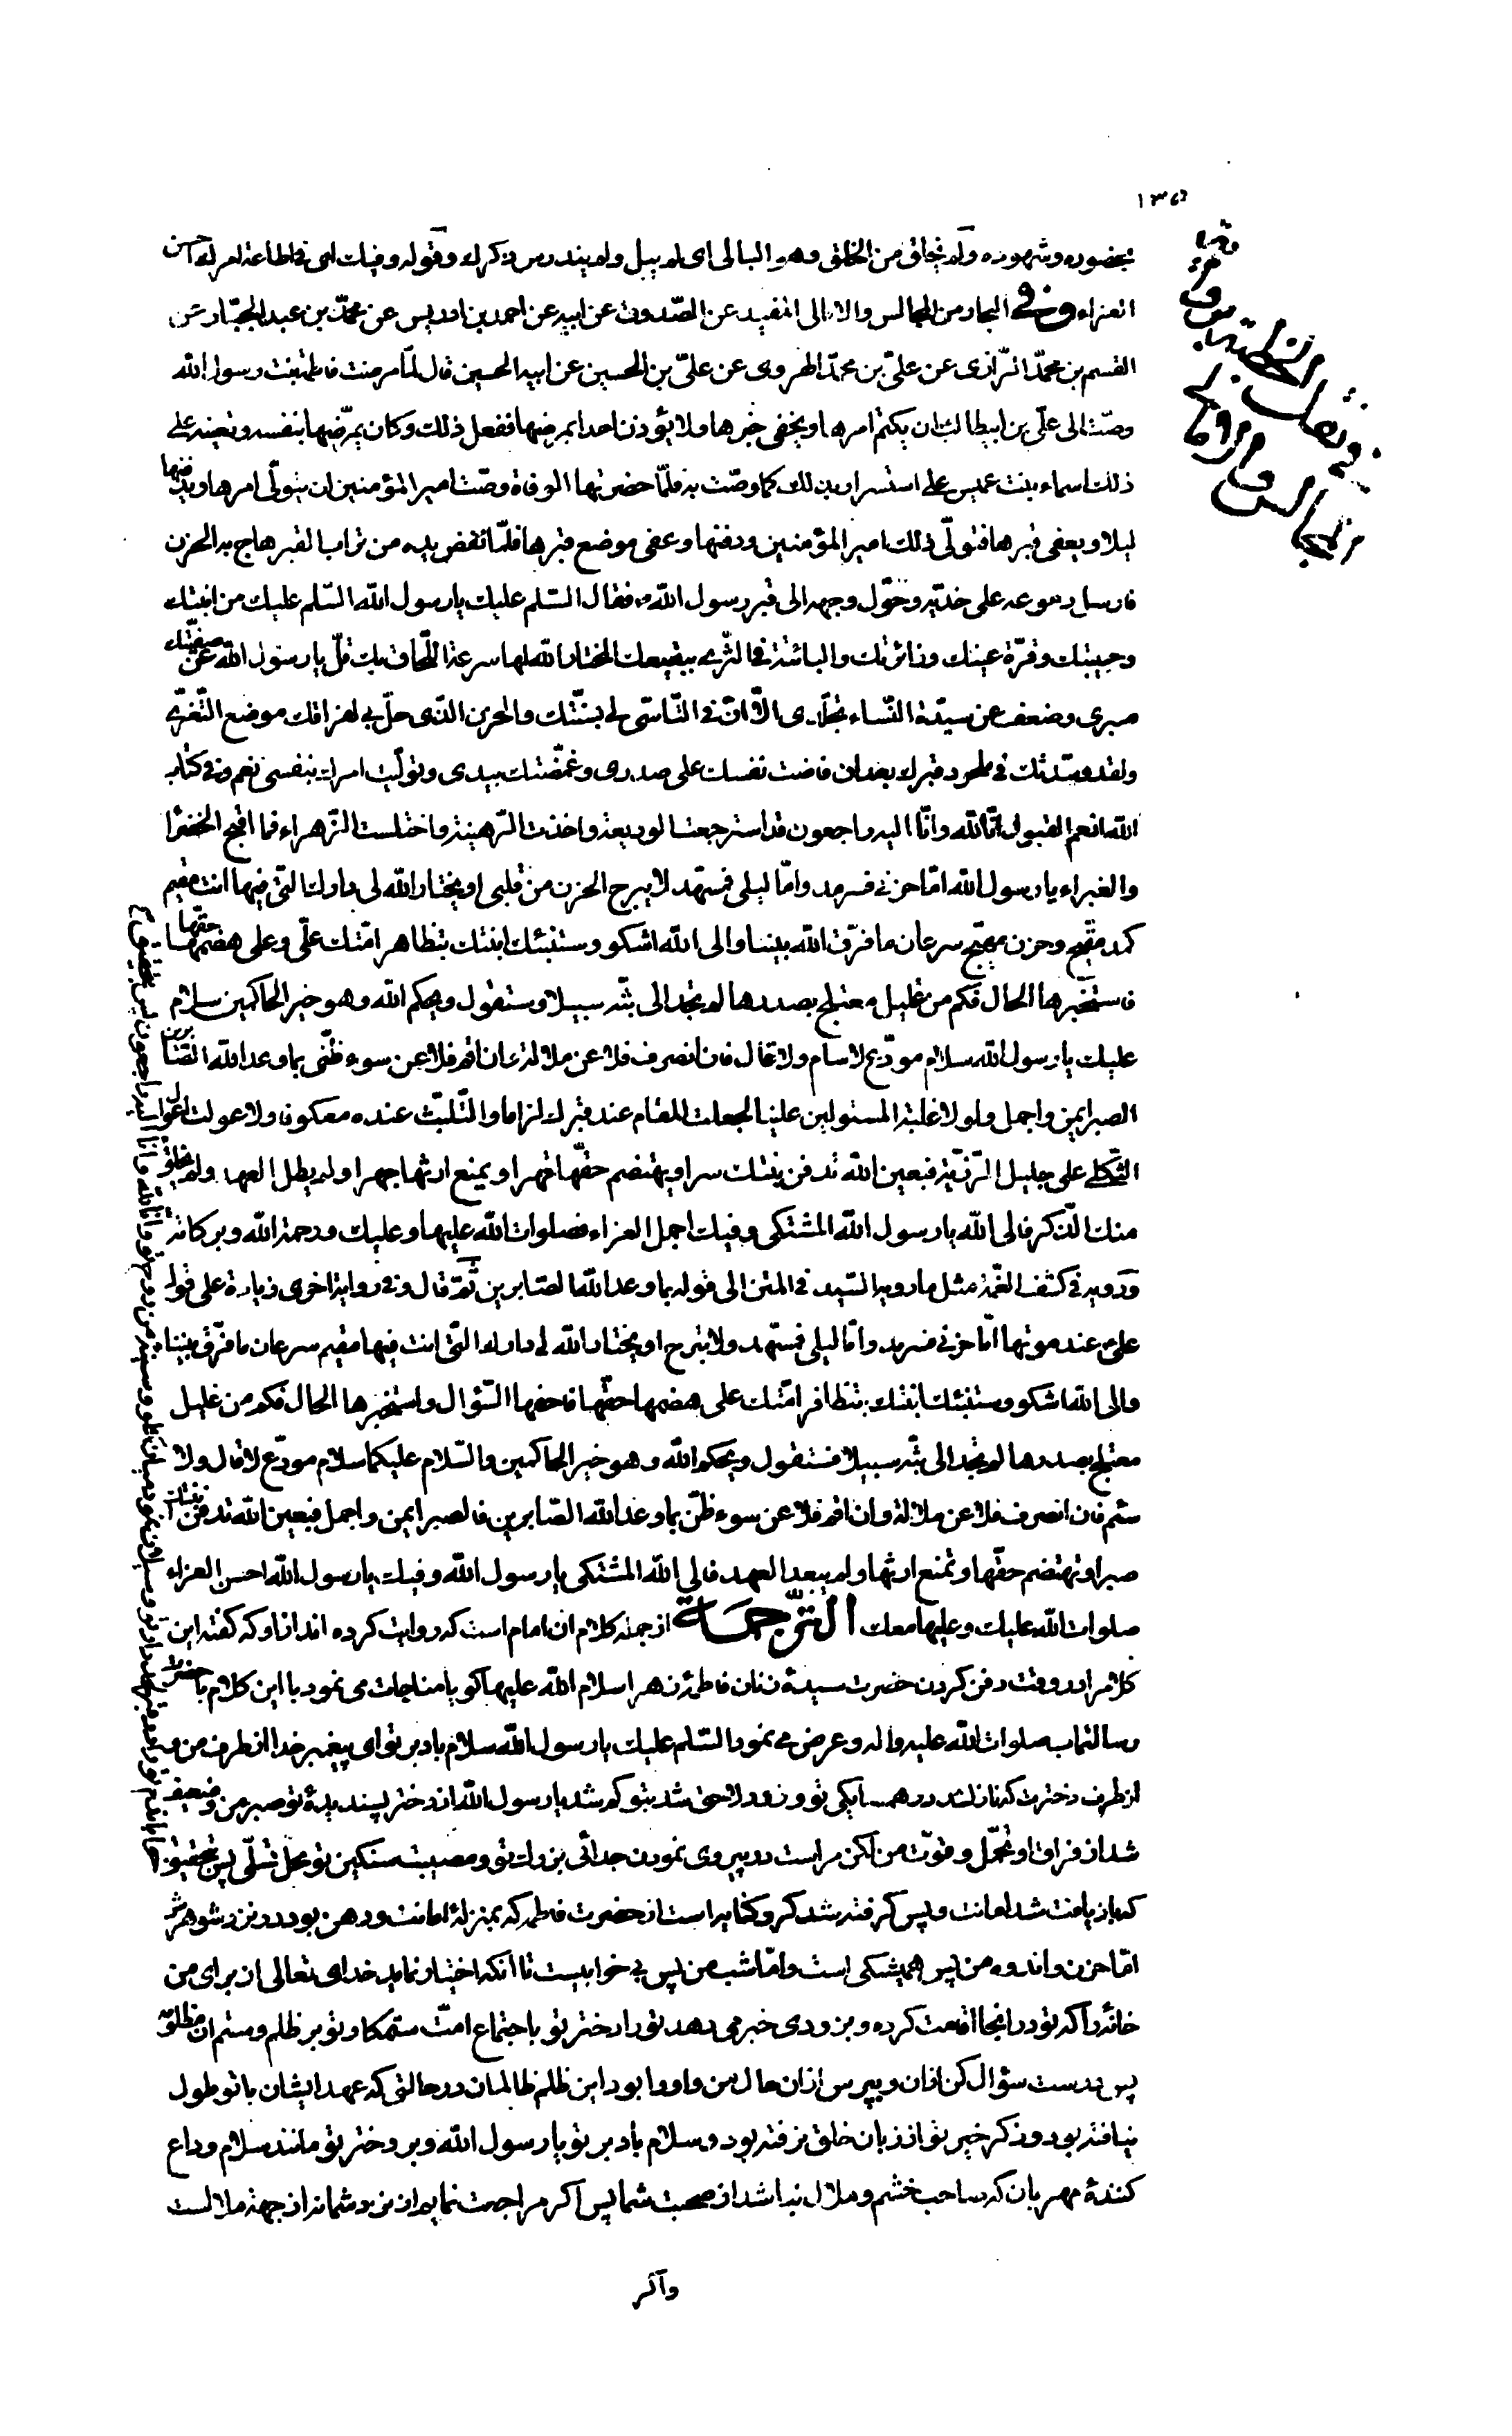 بحضوره وشهوده ولم يخلق من الخلق وهو البالى اى لم يبل ولم يندرس ذكرك وقوله وفيك اى فى اطاعة امرك احسن
العزاء وفى البحار من المجالس والامالى المفيد عن الصّدوق عن ابيه عن احمد بن ادريس عن محمّد بن عبد الجبّار عن
القسم بن محمّد الرّازى عن علىّ بن محمّد الهروى عن علىّ بن الحسين عن ابيه الحسين قال لمّا مرضت فاطمة بنت رسول الله
وصّت الى علىّ بن ابيطالب ان يكتم امرها ويخفى خبرها ولا يؤذن احدا بمرضها ففعل ذلك وكان يمرّضها بنفسه وتعينه على
ذلك اسماء بنت عميس على استسرار بذلك كما وصّت به فلمّا حضرتها الوفاة وصّت امير المؤمنين ان يتولّى امرها ويدفنها
ليلا ويعفى قبرها فتولّى ذلك امير المؤمنين ودفنها وعفى موضع قبرها فلمّا نفض يده من تراب القبر هاج به الحزن
فارسل دموعه على خدّيه وحوّل وجهه الى قبر رسول الله ص فقال السّلم عليك يا رسول الله السّلم عليك من ابنتك
وحبيبتك وقرّة عينك وزائرتك والبائتة فى الثّرى ببقيعك المختار الله لها سرعة اللّحاق بك قلّ يا رسول الله عن صفيّتك
صبرى وضعف عن سيّدة النّساء تجلّدى الّا انّ فى التّاسّى لى بسنّتك والحزن الّذى حلّ بى لفراقك موضع التّعزّى
ولقد وسّدتك فى ملحود قبرك بعد ان فاضت نفسك على صدرى وغمّضتك بيدى وتولّيت امرك بنفسى نعم وفى كتاب
الله انعم القبول انّا لله وانّا اليه راجعون قد استرجعت الوديعة واخذت الرّهينة واختلست الزّهراء فما اقبح الخضراء
والغبراء يا رسول الله امّا حزنى فسرمد وامّا ليلى فمسهّد لا يبرح الحزن من قلبى او يختار الله لى دارك الّتى فيها انت مقيم
كمد مقيّح وحزن مهيّج سرعان ما فرّق الله بيننا والى الله اشكو وستنبئك ابنتك بتظاهر امّتك علىّ وعلى هضمها حقّها
فاستخبرها الحال فكم من غليل معتلج بصدرها لم تجد الى بثّه سبيلا وستقول ويحكم الله وهو خير الحاكمين سلام
عليك يا رسول الله سلام مودّع لا سام ولا قال فان انصرف فلا عن ملالة وان اقم فلا عن سوء ظنّى بما وعد الله الصّابرين
الصبر ايمن واجمل ولولا غلبة المستولين علينا لجعلت المقام عند قبرك لزاما والتّلبّث عنده معكوفا ولاعولت اعوال
الثّكلى على جليل الرّزيّة فبعين الله تدفن بنتك سرا ويهتضم حقّها قهرا ويمنع ارثها جهرا ولم يطل العهد ولم يخلق
منك الذّكر فالى الله يا رسول الله المشتكى وفيك اجمل العزاء فصلوات الله عليها وعليك ورحمة الله وبركاته
وروي فى كشف الغمّة مثل ما رويه السّيد فى المتن الى قوله بما وعد الله الصّابرين ثمّ قال وفى رواية اخرى زيادة على قوله
علىّ عند موتها امّا حزنى فسرمد وامّا ليلى فمسهّد ولا يبرح او يختار الله لى دارك الّتى انت فيها مقيم سرعان ما فرّق بيننا
والى الله اشكو وستنبئك ابنتك بتظافر امّتك على هضمها حقّها فاحفها السّؤال واستخبرها الحال فكم من غليل
معتلج بصدرها لم تجد الى بثّه سبيلا فستقول ويحكم الله وهو خير الحاكمين والسّلام عليكما سلام مودّع لا قال ولا
سئم فان انصرف فلا عن ملالة وان اقم فلا عن سوء ظنّ بما وعد الله الصّابرين فالصبر ايمن واجمل فبعين الله تدفن بنتك
صبرا وتهتضم حقّها وتمنع ارثها ولم يبعد العهد فالى الله المشتكى يا رسول الله وفيك يا رسول الله احسن العزاء
صلوات الله عليك وعليها معك التّرجمة از جمله كلام ان امام است كه روايت كرده اند از او كه گفته اين
كلام را در وقت دفن كردن حضرت سيدۀ زنان فاطمۀ زهرا سلام الله عليها گويا مناجات مى نمود با اين كلام با حضرت
رسالتماب صلوات الله عليه واله وعرض مى نمود السّلم عليك يا رسول الله سلام باد بر تو اى پيغمبر خدا از طرف من و
از طرف دخترت كه نازل شد در همسايگى تو و زود لاحق شد بتو كم شد يا رسول الله از دختر پسنديدۀ تو صبر من وضعيف
شد از فراق او تحمّل وقوّت من لكن مراست در پيروى نمودن جدائى بزرك تو ومصيبت سنگين تو محل تسلّى پس بتحقيق
كه باز يافت شد امانت وپس گرفته شد گرو وكنايه است از حضرت فاطمه كه بمنزلۀ امانت ورهن بود در نزد شوهرش
امّا حزن واندوه من پس هميشگى است وامّا شب من پس بى خوابيست تا آنكه اختيار نمايد خداى تعالى از براى من
خانۀ را كه تو در انجا اقامت كرده وبزودى خبر مى دهد تو را دختر تو باجتماع امّت ستمكار تو بر ظلم وستم ان مظلومه
پس درست سؤال كن از ان وبپرس از ان حال من واو را بود اين ظلم ظالمان در حالتى كه عهد ايشان با تو طول
نيافته بود وذكر خير تو از زبان خلق نرفته بود وسلام باد بر تو يا رسول الله وبر دختر تو مانند سلام وداع
كنندۀ مهربان كه صاحب خشم وملال نباشد از صحبت شما پس اگر مراجعت نمايم از نزد شما نه از جهة ملالست